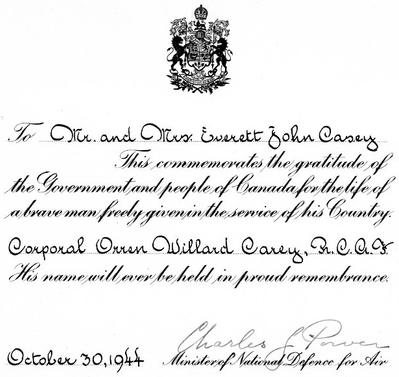 To Mr. and Mrs. Everett John Casey
This commemorates the gratitude of
the Government and people of Canada for the life of
a brave man freely given in the service of his Country.
Corporal Orren Willard Casey, R.C.A.F.
His name will ever be held in proud remembrance.
Charles G Power
October 30, 1944 Minister of National Defence for Air